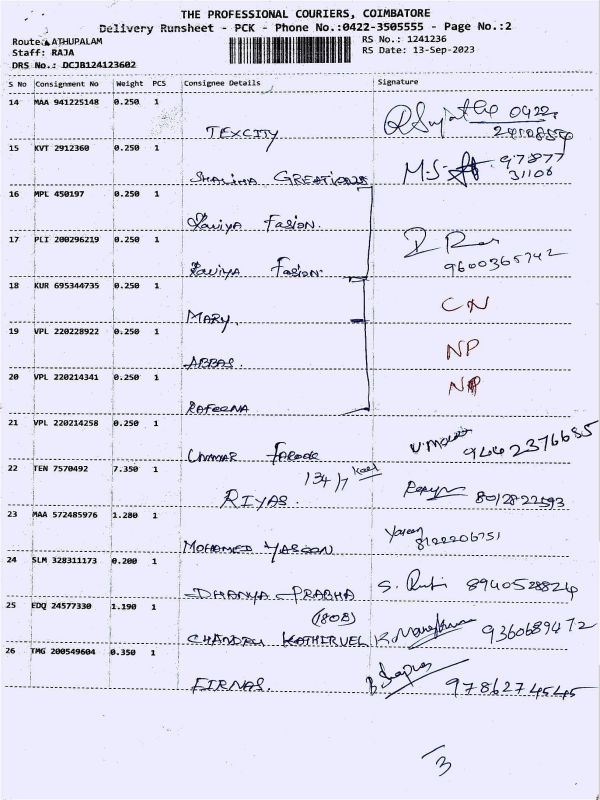 THE PROFESSIONAL COURIERS, COIMBATORE
Delivery Runsheet - PCK - Phone No.:0422-3505555 - Page No.:2
Route: ATHUPALAM
RS No.: 1241236
Staff: RAJA
RS Date: 13-Sep-2023
DRS No.: DCJB124123602
S No Consignment No Weight PCS Consignee Details Signature
14 MAA 941225148 0.250 1
TEXCITY
0422
15 KVT 2912360 0.250 1
M.S. 97877
31106
SHALIMA CREATIONS
16 MPL 450197 0.250 1
Raviya Fasion.
17 PLI 200296219 0.250 1
9600365742
Raviya Fasion.
18 KUR 695344735 0.250 1
CN
MARY.
19 VPL 220228922 0.250 1
NP
ABBAS.
20 VPL 220214341 0.250 1
NP
RAFEENA
21 VPL 220214258 0.250 1
9442376685
UMMAR FAROOK
22 TEN 7570492 7.350 1
134/7
8012822593
RIYAS.
23 MAA 572485976 1.280 1
8122206751
MOHAMED YASOON
24 SLM 328311173 0.200 1
S. 8940528824
DHANYA PRABHA
(1808)
25 EDQ 24577330 1.190 1
CHANDRU KATHIRVEL 9360689472
26 TMG 200549604 0.350 1
FIRNAS.
9786274545
3